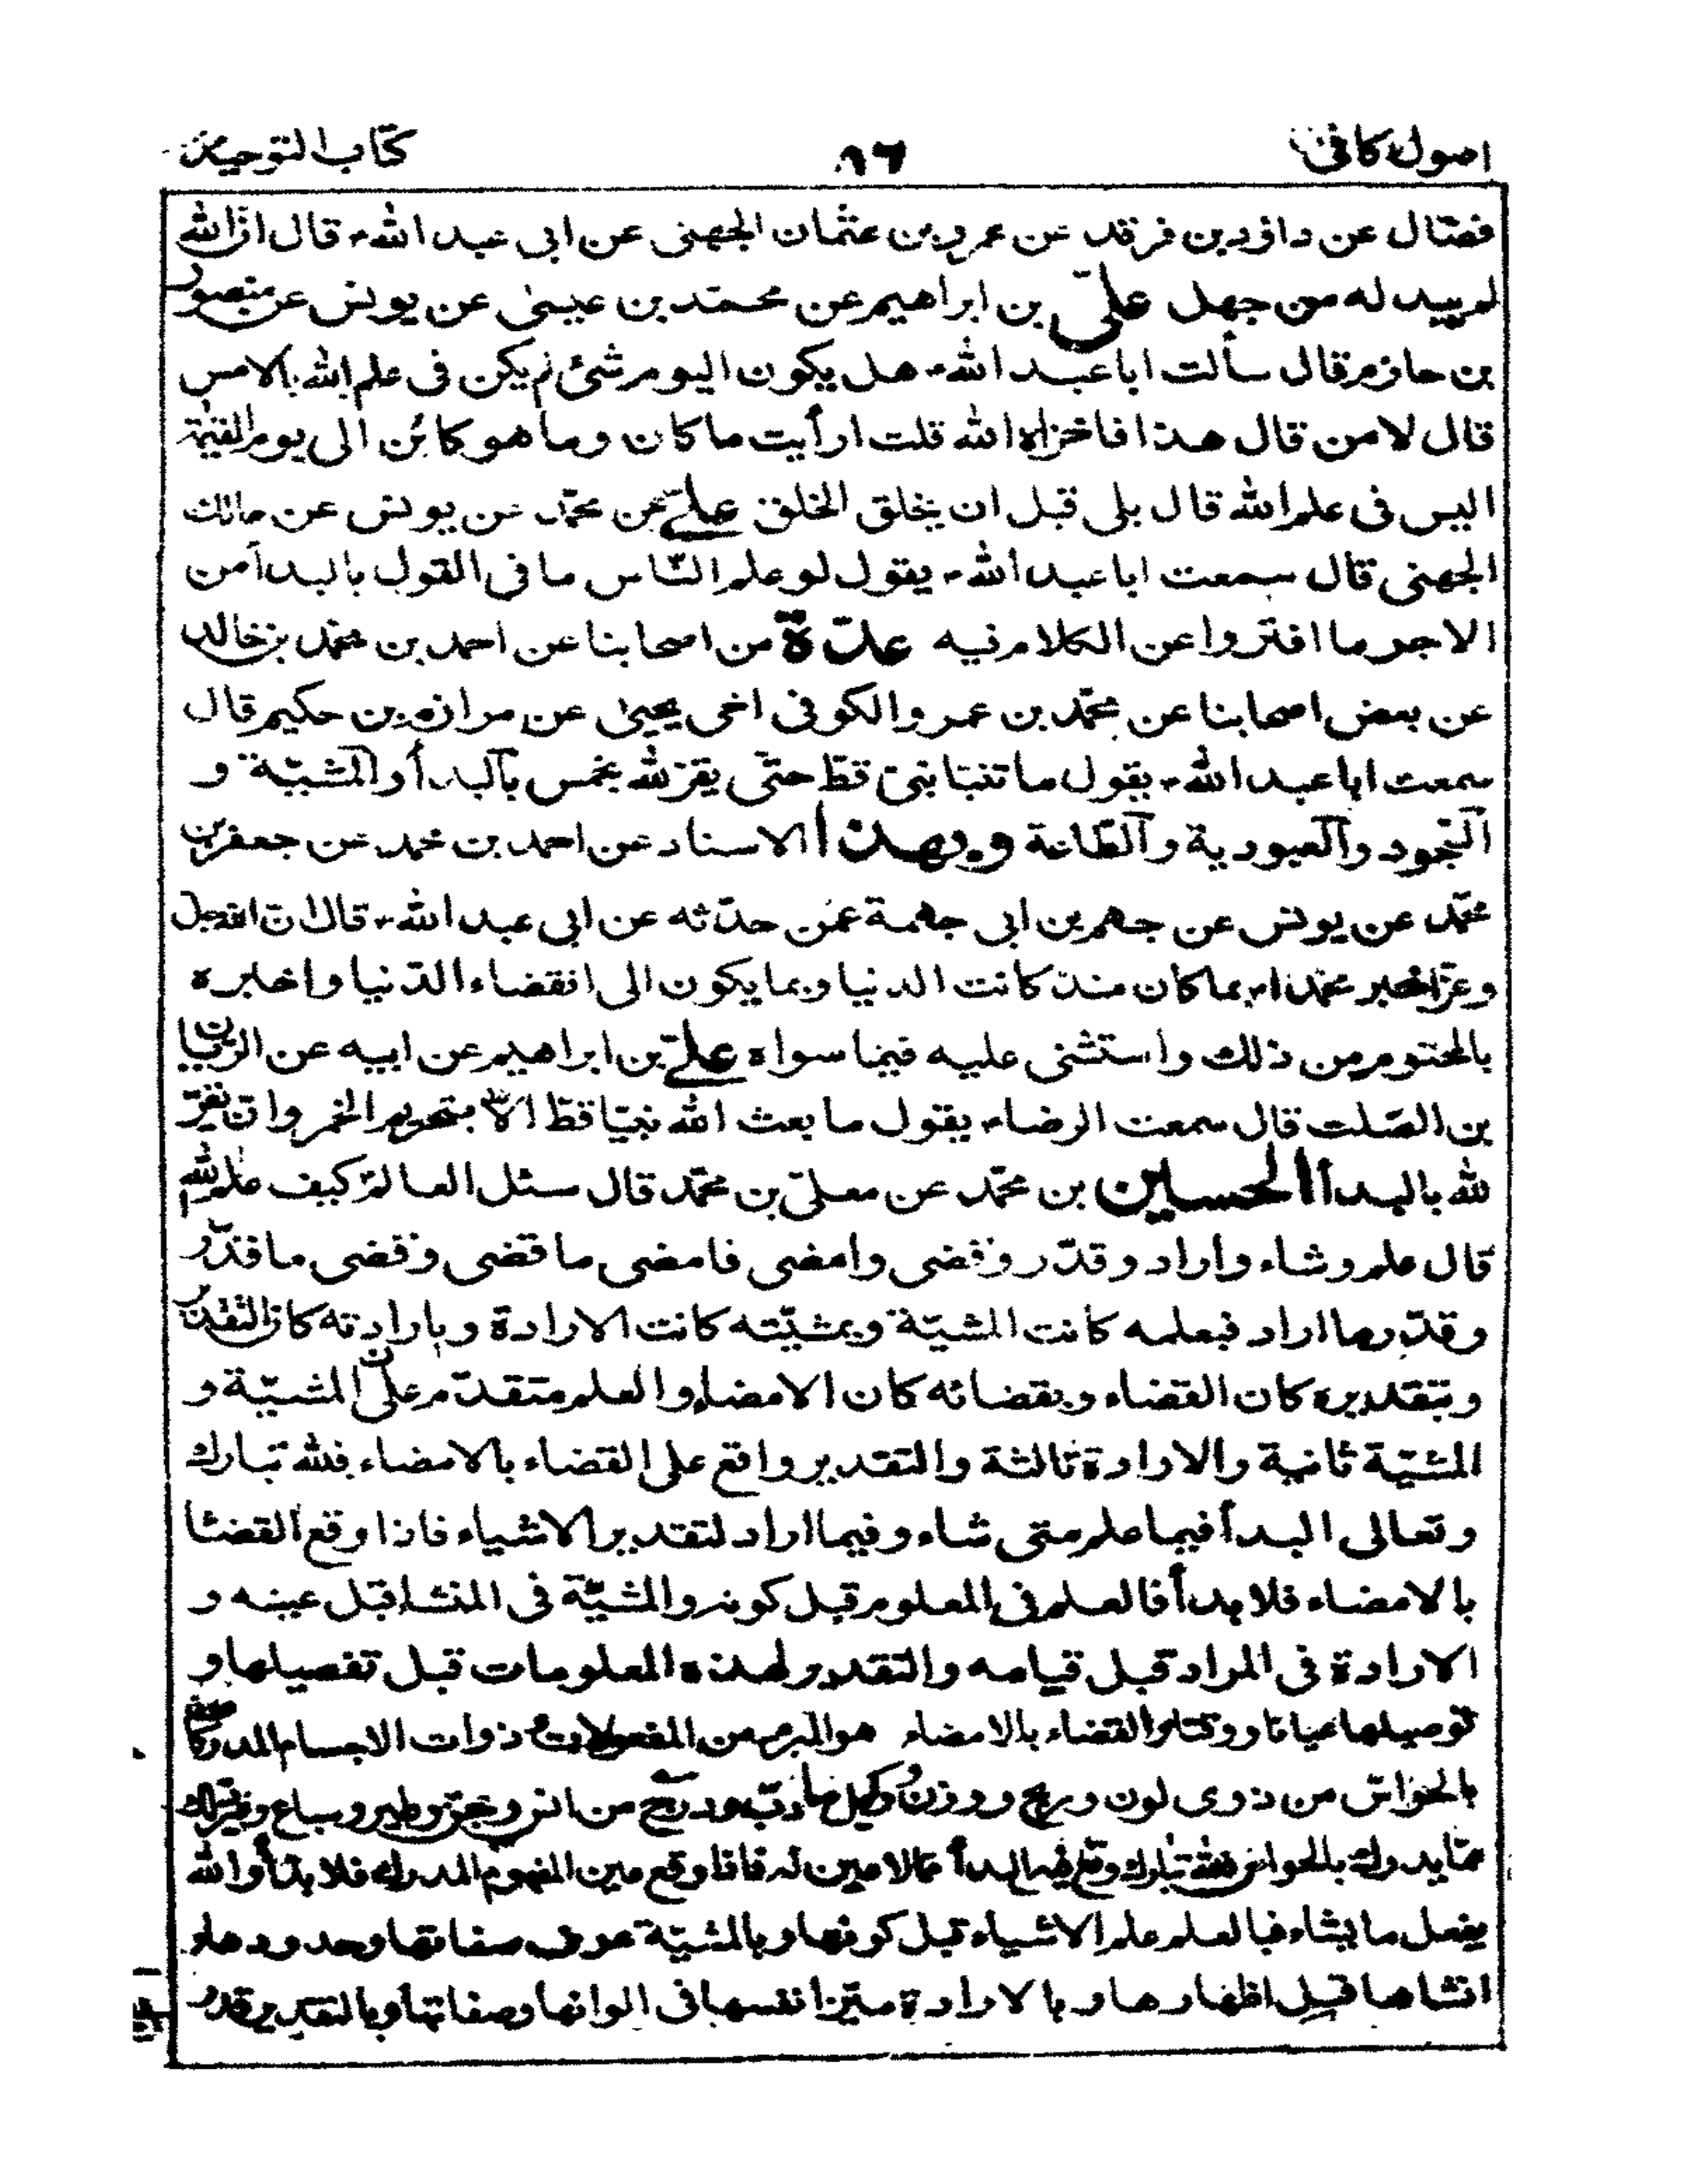 اصول كافى ٨٦ كتاب التوحيد
فضّال عن داؤد بن فرقد عن عمرو بن عثمان الجهنى عن ابى عبد الله ع قال ان الله
لم يبد له من جهل علىّ بن ابراهيم عن محمّد بن عيسىٰ عن يونس عن منصور
بن حازم قال سألت ابا عبد الله ع هل يكون اليوم شئ لم يكن فى علم الله بالامس
قال لا من قال هذا فاخزاه الله قلت ارأيت ما كان وما هو كائن الى يوم القيٰمة
اليس فى علم الله قال بلى قبل ان يخلق الخلق علىّ عن محمّد عن يونس عن مالك
الجهنى قال سمعت ابا عبد الله ع يقول لو علم النّاس ما فى القول بالبدأ من
الاجر ما افتروا عن الكلام فيه عدّة من اصحابنا عن احمد بن محمّد بن خالد
عن بعض اصحابنا عن محمّد بن عمرو الكوفى اخى يحيىٰ عن مرازم بن حكيم قال
سمعت ابا عبد الله ع يقول ما تنبّا نبىّ قطّ حتّى يقرّ لله بخمس بالبدأ والمشيّة و
السّجود والعبودية والطّاعة وبهذا الاسناد عن احمد بن محمد عن جعفر بن
محمّد عن يونس عن جهم بن ابى جهمة عمّن حدّثه عن ابى عبد الله ع قال انّ الله جل
وعزّ اخبر محمّدا ص بما كان منذ كانت الدنيا وبما يكون الى انقضاء الدّنيا واخبره
بالمحتوم من ذلك واستثنى عليه فيما سواه علىّ بن ابراهيم عن ابيه عن الريان
بن الصّلت قال سمعت الرضا ع يقول ما بعث الله نبيّا قطّ الّا بتحريم الخمر وان يقرّ
لله بالبدأ الحسين بن محمّد عن معلىّ بن محمّد قال سئل العالم ع كيف علم الله
قال علم وشاء واراد وقدّر وقضى وامضى فامضى ما قضى وقضى ما قدّر
وقدّر ما اراد فبعلمه كانت المشيّة وبمشيّته كانت الارادة وبارادته كان التقدير
وبتقديره كان القضاء وبقضائه كان الامضاء والعلم متقدّم على المشيّة و
المشيّة ثانية والارادة ثالثة والتقدير واقع على القضاء بالامضاء فلله تبارك
وتعالى البدأ فيما علم متى شاء وفيما اراد لتقدير الاشياء فاذا وقع القضا
بالامضاء فلا بدأ فالعلم فى المعلوم قبل كونه والمشيّة فى المنشا قبل عينه و
الارادة فى المراد قبل قيامه والتقدير لهذه المعلومات قبل تفصيلها و
توصيلها عيانا ووقتا والقضاء بالامضاء هو المبرم من المفعولات ذوات الاجسام المدركات
بالحواسّ من ذوى لون وريح ووزن وكيل وما دبّ ودرج من انس وجنّ وطير وسباع وغير ذلك
ممّا يدرك بالحواس فلله تبارك وتعالى فيه البدأ ممّا لا عين له فاذا وقع العين المفهوم المدرك فلا بدأ والله
يفعل ما يشاء فبالعلم علم الاشياء قبل كونها وبالمشيّة عرف صفاتها وحدودها و
انشاها قبل اظهارها وبالارادة ميّز انفسها فى الوانها وصفاتها وبالتقدير قدر